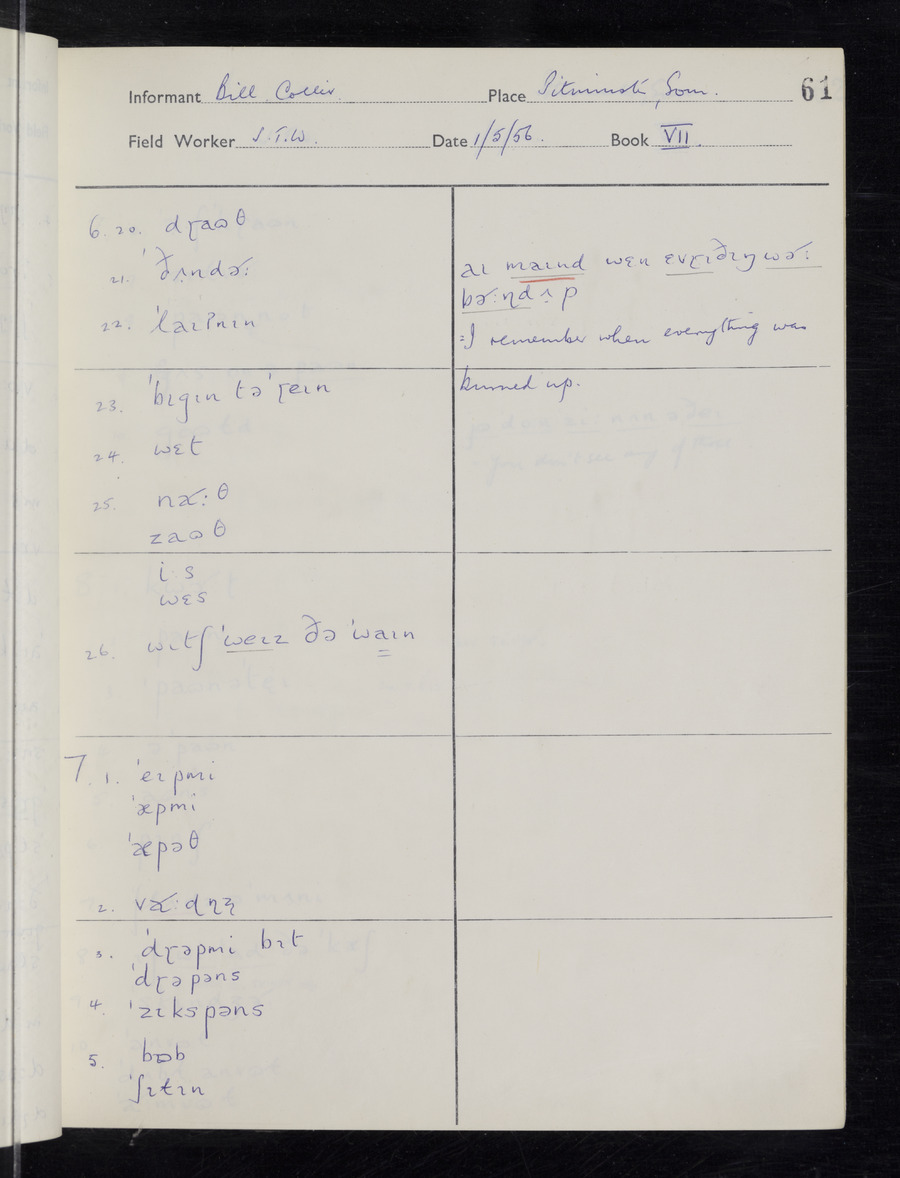 Informant Bill Collis. Place Pitminster, Som. 61
Field Worker S.T.W. Date 1/5/56. Book VII
6.20. dɽaɷθ
21. ˈðʌndə˞:
22. ˈlaɪʔnɪn
aɪ maɪnd wɛn ɛvɽɪðɪŋ wə˞:
bə˞:ɳd ʌp
=I remember when everything was
burned up.
23. ˈbɪgɪn tə ˈɽeɪn
24. wɛt
25. næ˞:θ
zaɷθ
i·s
wɛs
26. wɪtʃ ˈweɪz ðə ˈwaɪn
7.1. ˈeɪpmi
ˈæpmi
ˈæpəθ
2. væ˞:dɳʐ
3. ˈdɽəpmi bɪt
ˈdɽəpəns
4. ˈzɪkspəns
5. bɒb
ˈʃɪlɪn